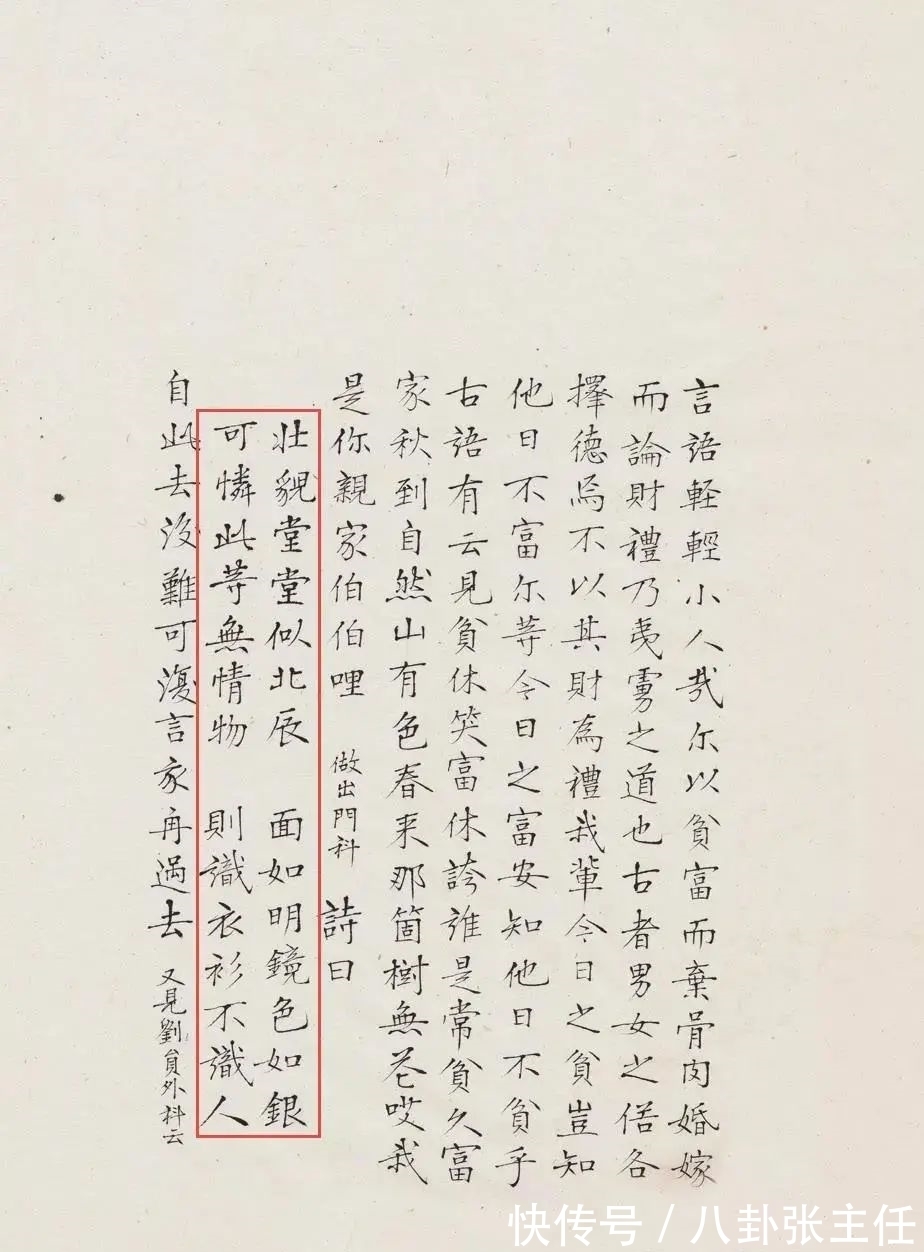 言語輕輕小人哉尔以貧富而棄骨肉婚嫁
而論財禮乃夷虜之道也古者男女之偌各
擇德焉不以其財為禮我輩今日之貧豈知
他日不富尔等今日之富安知他日不貧乎
古語有云見貧休笑富休誇誰是常貧久富
家秋到自然山有色春来那箇樹無花哎我
是你親家伯伯哩 做出門科 詩曰
壮貌堂堂似北辰 面如明鏡色如銀
可憐此等無情物 則識衣衫不識人
自此去没難可復言永再過去 又見劉員外科云
快传号 / 八卦张主任